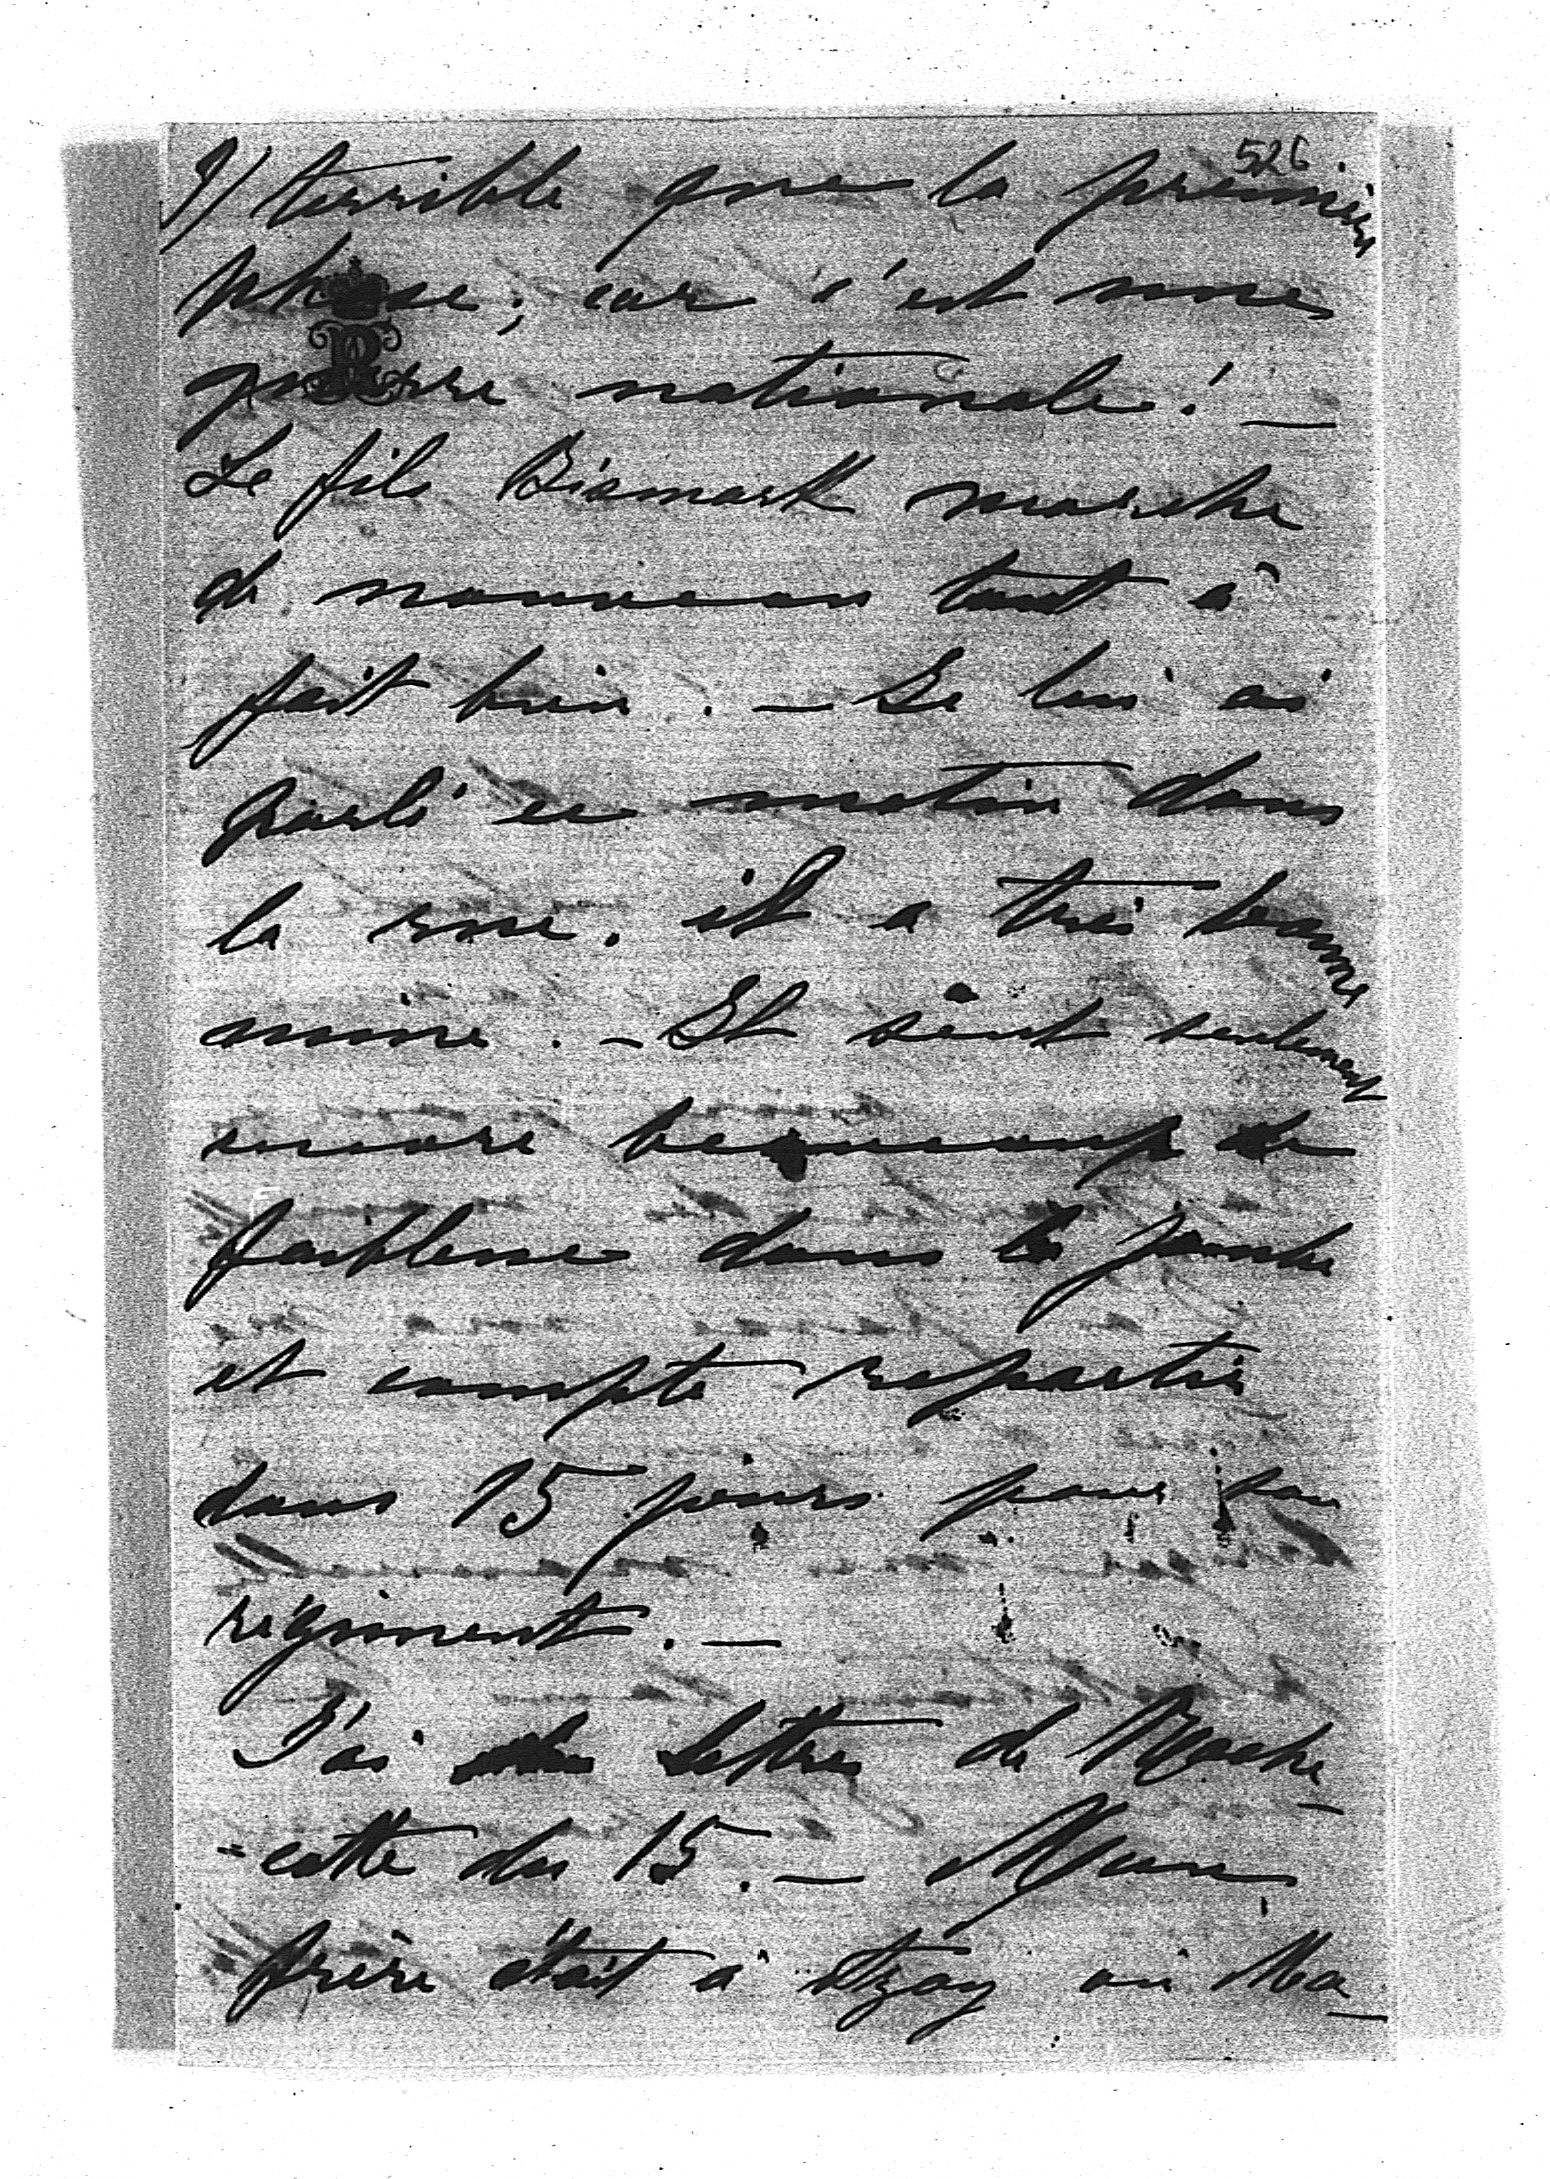 526
9) terrible que la première
phase, car c'est une
guerre nationale! —
Le fils Bismark marche
de nouveau tout à
fait bien. — Je lui ai
parlé ce matin dans
la rue. il a très bonne
mine. — Il sent seulement
encore beaucoup de
faiblesse dans la jambe
et compte repartir
dans 15 jours pour son
régiment. —
J'ai des lettres de Roche_
=cotte du 15. — Mon
frère était à Azay où Ma_